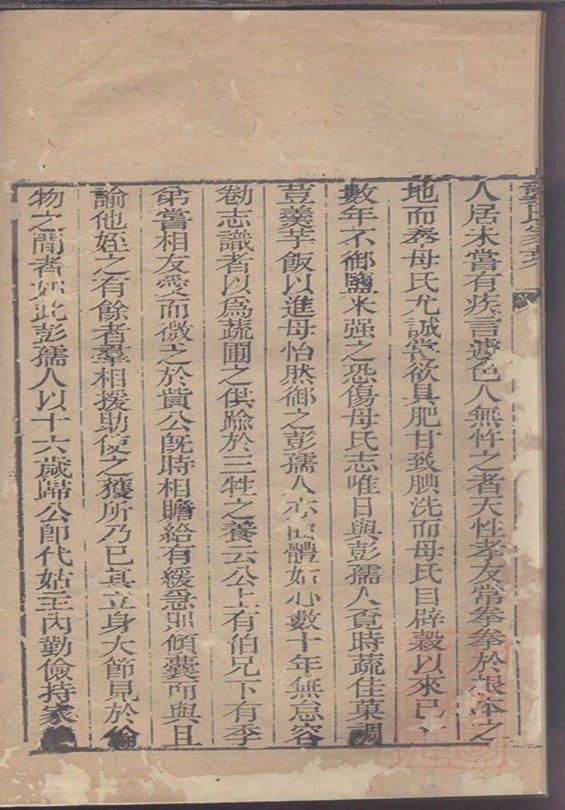 人居未嘗有疾言遽色人無忤之者天性孝友常拳拳於根本之
地而奉母氏尤誠嘗欲具肥甘致腆洗而母氏目辟穀以來已
數年不御鹽米强之恐傷母氏志唯日與彭孺人覓時蔬佳菓調
荳羹芋飯以進母怡然御之彭孺人亦體姑心數十年無怠容
勌志識者以爲蔬圃之供踰於三牲之養云公上有伯兄下有季
弟嘗相友愛而微之於貲公旣時相贍給有緩急則傾囊而與且
諭他姪之有餘者羣相援助使之獲所乃已其立身大節見於倫
物之間者如此彭孺人以十六歲歸公卽代姑主內勤儉持家